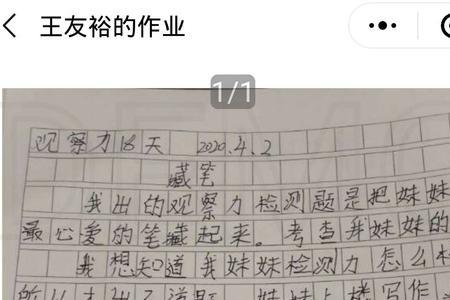 王友裕的作业
1/1
观察力18天 2020.4.2
藏笔
我出的观察力检测题是把妹妹
最心爱的笔藏起来。考查我妹妹的
我想知道我妹妹检测力怎么